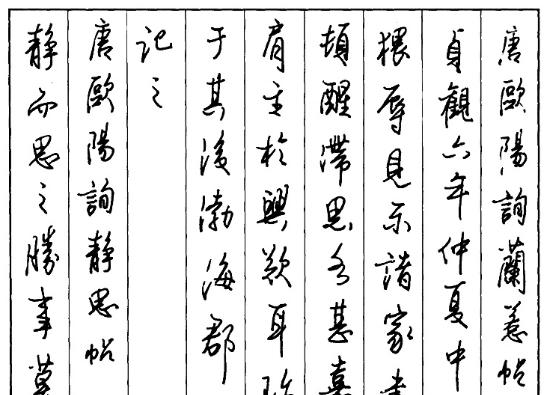 唐歐陽詢蘭惹帖
貞觀六年仲夏中
猥辱見示諸家
頓醒滯思甚嘉
肩主於興歎耳
于其後渤海郡
記之
唐歐陽詢靜思帖
靜而思之勝事莫